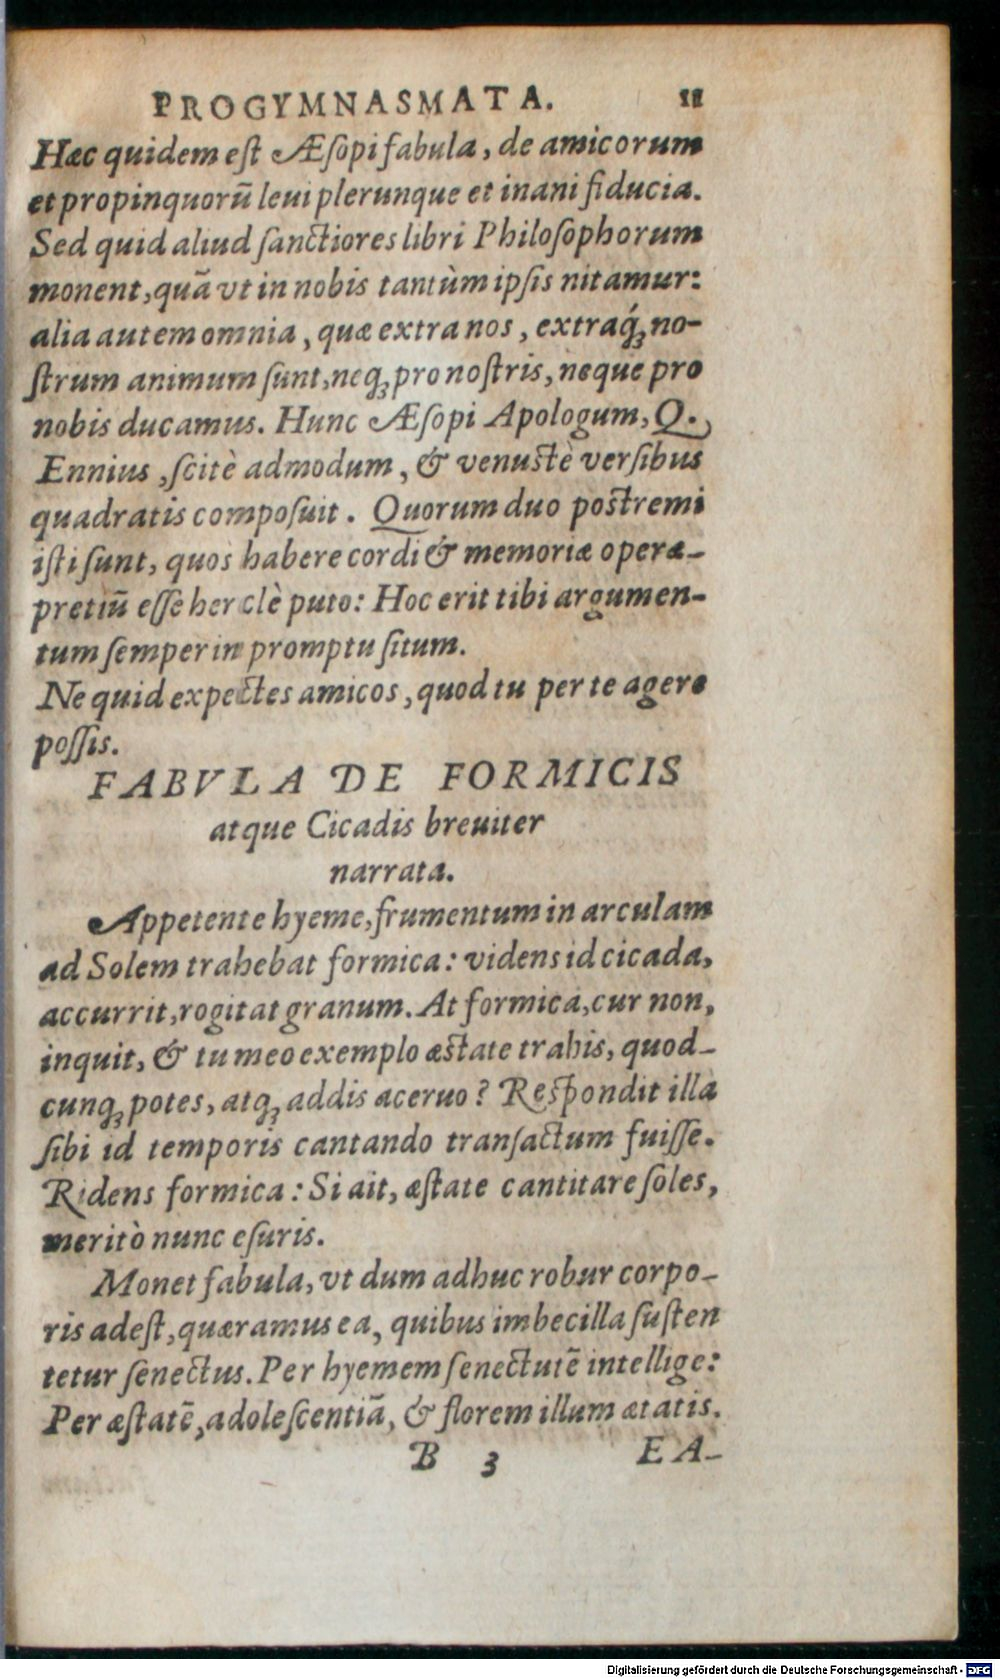 PROGYMNASMATA. 11
Hæc quidem eſt Æſopi fabula, de amicorum
et propinquorũ leui plerunque et inani fiducia.
Sed quid aliud ſanctiores libri Philoſophorum
monent, quã vt in nobis tantùm ipſis nitamur:
alia autem omnia, quæ extra nos, extraq́; no-
ſtrum animum ſunt, neq; pro noſtris, neque pro
nobis ducamus. Hunc Æſopi Apologum, Q.
Ennius, ſcitè admodum, & venustè verſibus
quadratis compoſuit. Quorum duo postremi
iſti ſunt, quos habere cordi & memoriæ operæ-
pretiũ eſſe herclè puto: Hoc erit tibi argumen-
tum ſemper in promptu ſitum.
Ne quid expectes amicos, quod tu per te agere
poſſis.
FABVLA DE FORMICIS
atque Cicadis breuiter
narrata.
Appetente hyeme, frumentum in arculam
ad Solem trahebat formica: videns id cicada,
accurrit, rogitat granum. At formica, cur non,
inquit, & tu meo exemplo æstate trahis, quod-
cunq; potes, atq; addis aceruo? Respondit illa
ſibi id temporis cantando tranſactum fuiſſe.
Ridens formica: Si ait, æſtate cantitare ſoles,
meritò nunc eſuris.
Monet fabula, vt dum adhuc robur corpo-
ris adeſt, quæramus ea, quibus imbecilla ſuſten
tetur ſenectus. Per hyemem ſenectutẽ intellige:
Per æſtatẽ, adoleſcentiã, & florem illum ætatis.
B 3 EA-
Digitalisierung gefördert durch die Deutsche Forschungsgemeinschaft - DFG